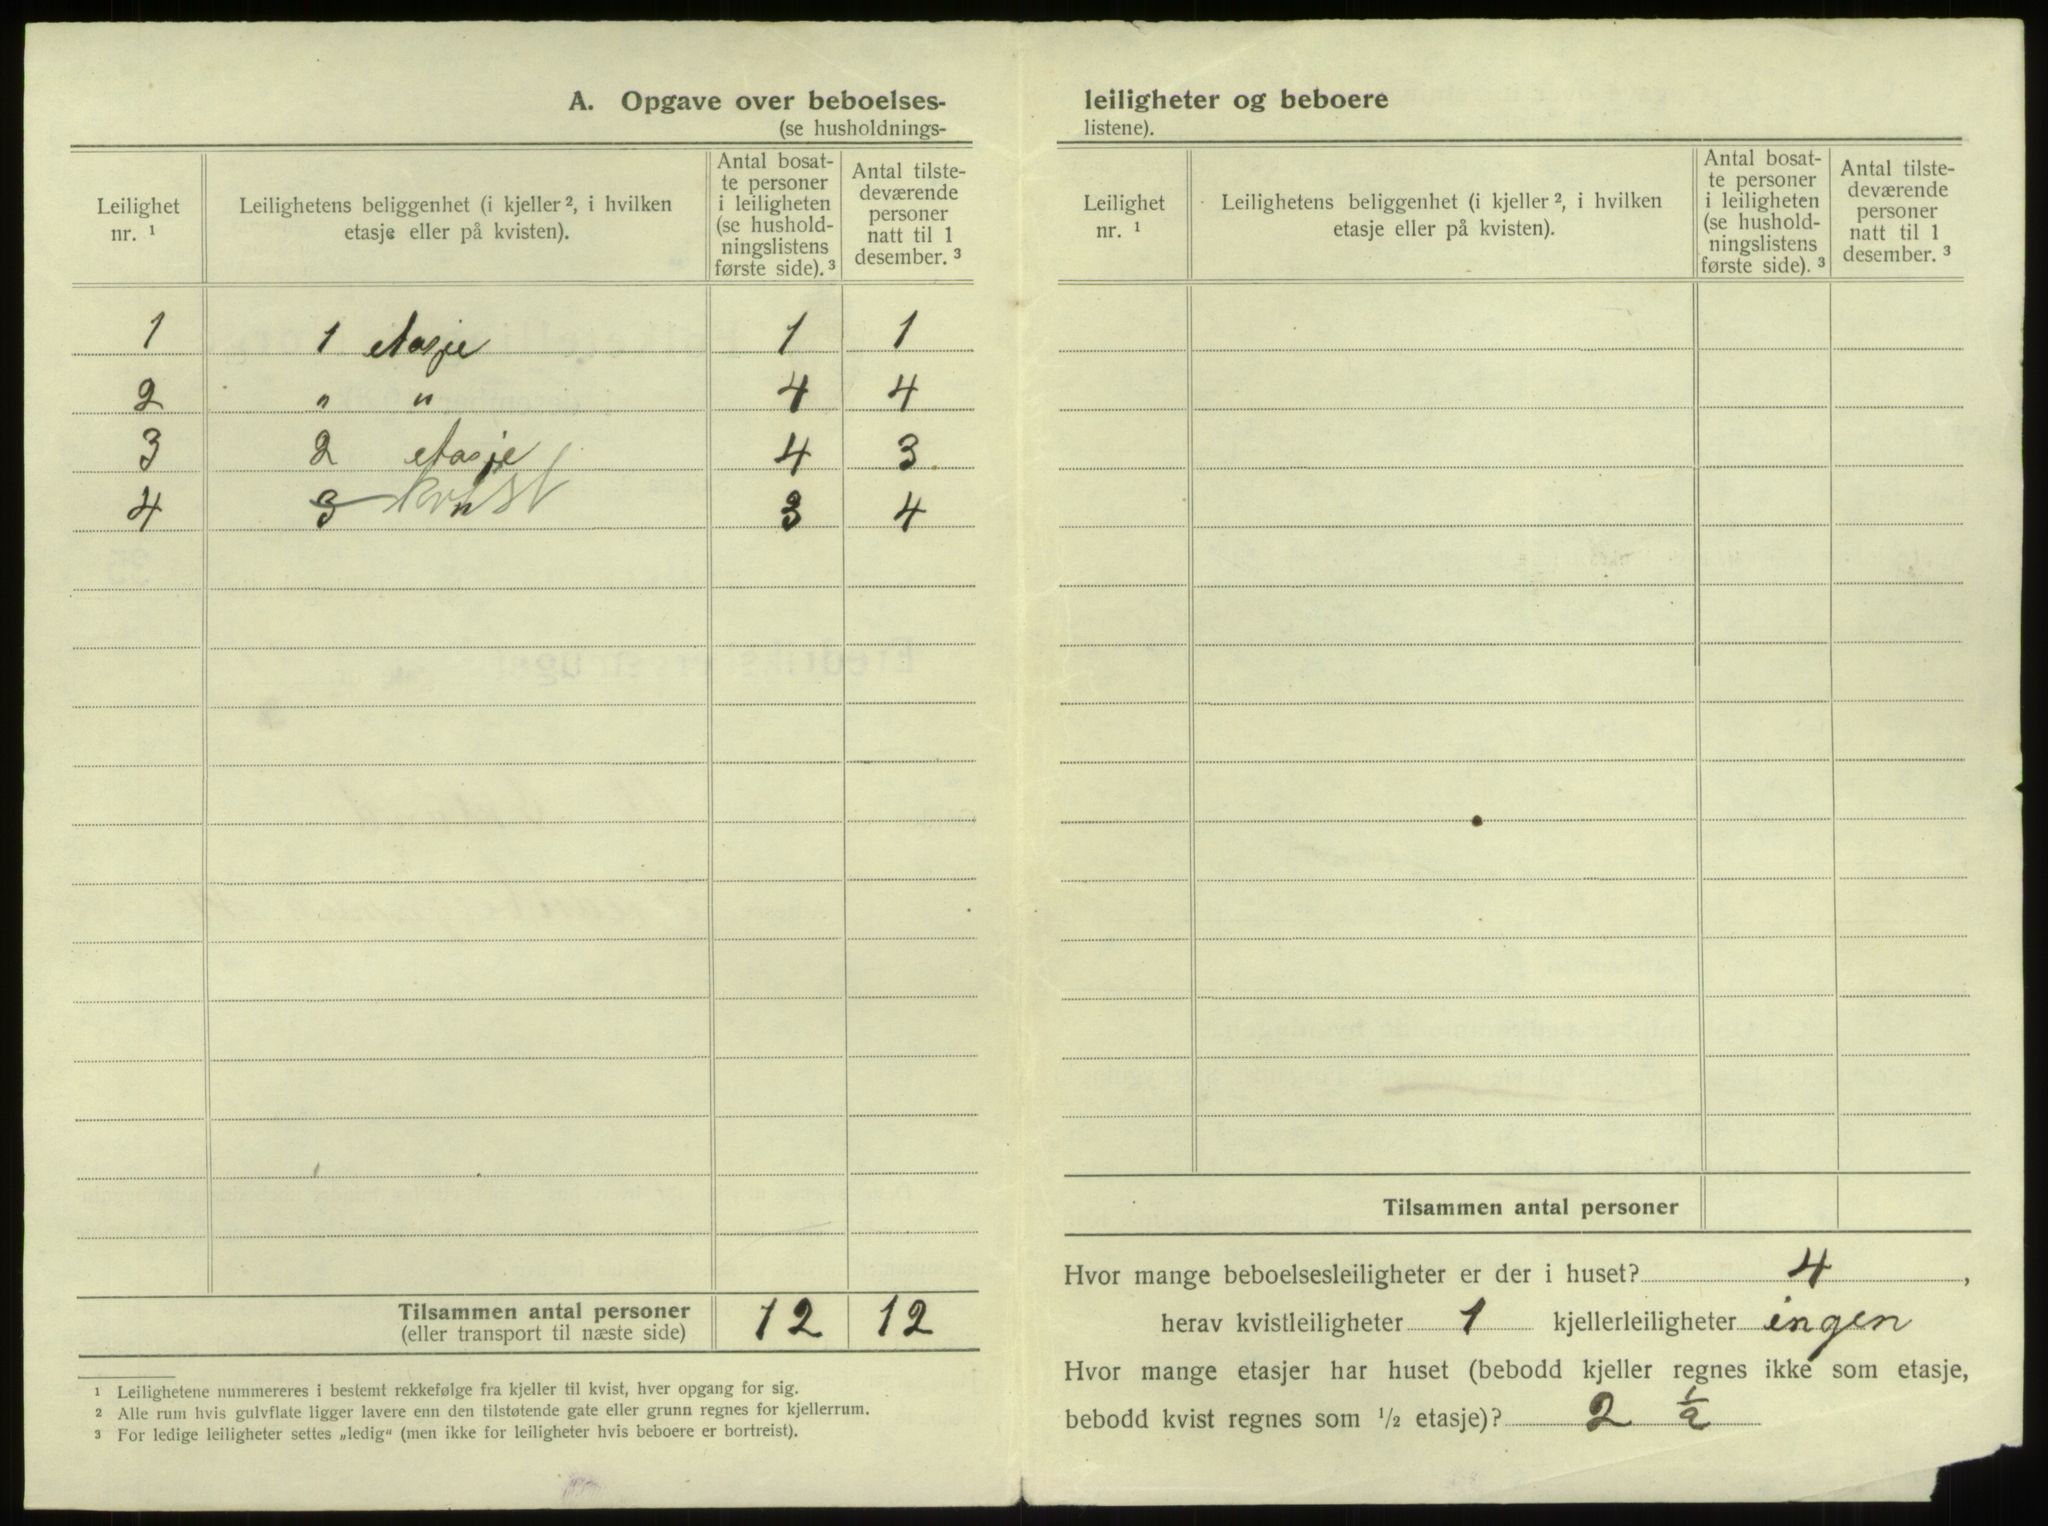 A. Opgave over beboelses-
(se husholdnings-
Leilighet nr. ¹
Leilighetens beliggenhet (i kjeller ², i hvilken etasje eller på kvisten).
Antal bosat-
te personer
i leiligheten
(se hushold-
ningslistens
første side). ³
Antal tilste-
deværende
personer
natt til 1
desember. ³
1 1 etasje 1 1
2 " " 4 4
3 2 etasje 4 3
4 3 kvist 3 4
Tilsammen antal personer 12 12
(eller transport til næste side)
¹ Leilighetene nummereres i bestemt rekkefølge fra kjeller til kvist, hver opgang for sig.
² Alle rum hvis gulvflate ligger lavere enn den tilstøtende gate eller grunn regnes for kjellerrum.
³ For ledige leiligheter settes „ledig“ (men ikke for leiligheter hvis beboere er bortreist).
leiligheter og beboere
listene).
Leilighet nr. ¹
Leilighetens beliggenhet (i kjeller ², i hvilken etasje eller på kvisten).
Antal bosat-
te personer
i leiligheten
(se hushold-
ningslistens
første side). ³
Antal tilste-
deværende
personer
natt til 1
desember. ³
Tilsammen antal personer
Hvor mange beboelsesleiligheter er der i huset? 4,
herav kvistleiligheter 1 kjellerleiligheter ingen
Hvor mange etasjer har huset (bebodd kjeller regnes ikke som etasje,
bebodd kvist regnes som ½ etasje)? 2 ½